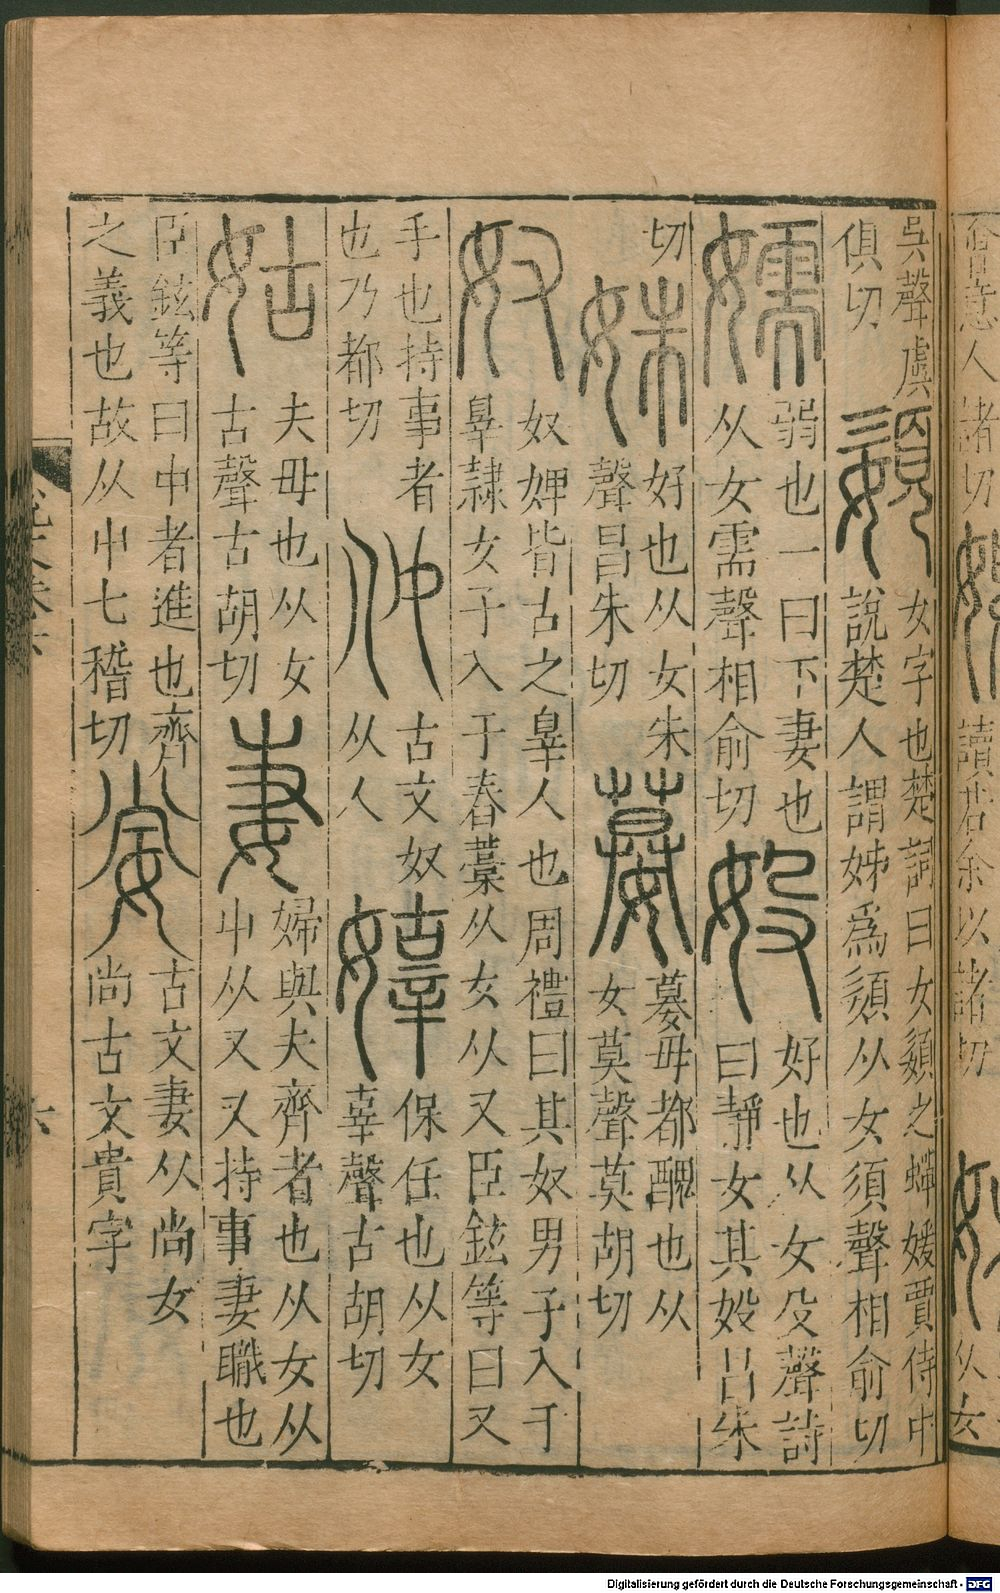 會意人諸切
讀若余以諸切
从女
吳聲虞
俱切
嬃
女字也楚詞曰女嬃之嬋媛賈侍中
說楚人謂姊爲嬃从女須聲相俞切
嬬
弱也一曰下妻也
从女需聲相俞切
㚼
好也从女殳聲詩
曰靜女其㚼昌朱
切
姝
好也从女朱
聲昌朱切
㜈
㜈母都醜也从
女莫聲莫胡切
奴
奴婢皆古之辠人也周禮曰其奴男子入于
辠隷女子入于舂藁从女从又臣鉉等曰又
手也持事者
也乃都切
㐐
古文奴
从人
嫴
保任也从女
辜聲古胡切
姑
夫母也从女
古聲古胡切
妻
婦與夫齊者也从女从
屮从又又持事妻職也
臣鉉等曰中者進也齊
之義也故从屮七稽切
𡜈
古文妻从𡭴女
𡭴古文貴字
說文卷六
六